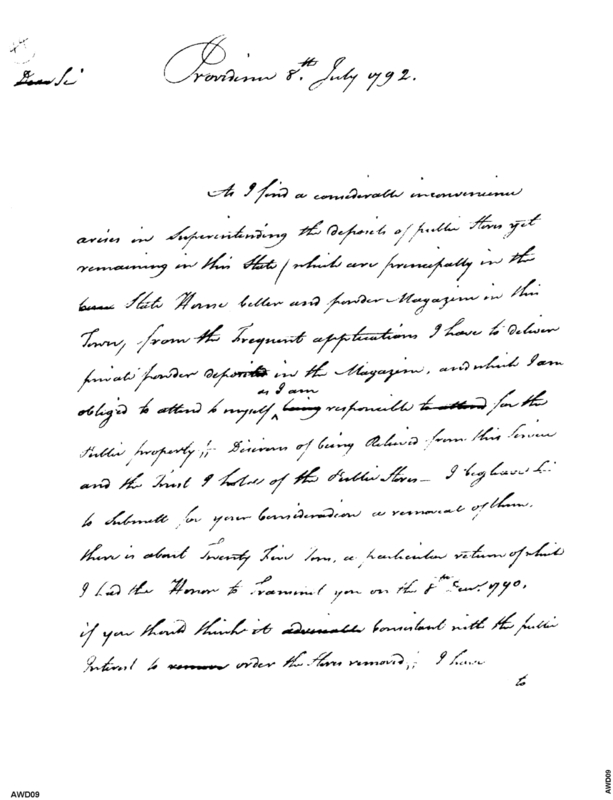 Dear Sir Providence 8th. July 1792.
As I find a considerable inconvenience
arises in Superintending the deposits of public Stores yet
remaining in this State / which are principally in the
State House Celler and powder Magazine in this
Town, from the Frequent applications I have to deliver
private powder deposited in the Magazine, and which I am
as I am
obliged to attend to myself, being responsible to attend for the
Public property;, Desirous of being Relieved from this Service
and the Trust I hold of the Public Stores — I beg leave Sir
to Submitt for your Consideration a removal of them.
there is about Twenty Five tons, a particular return of which
I had the Honor to Transmit you on the 8th 1790,
if you should think it adviseable Consistant with the public
Interest to remove order the Stores removed;, I have
to
AWD09
AWD09